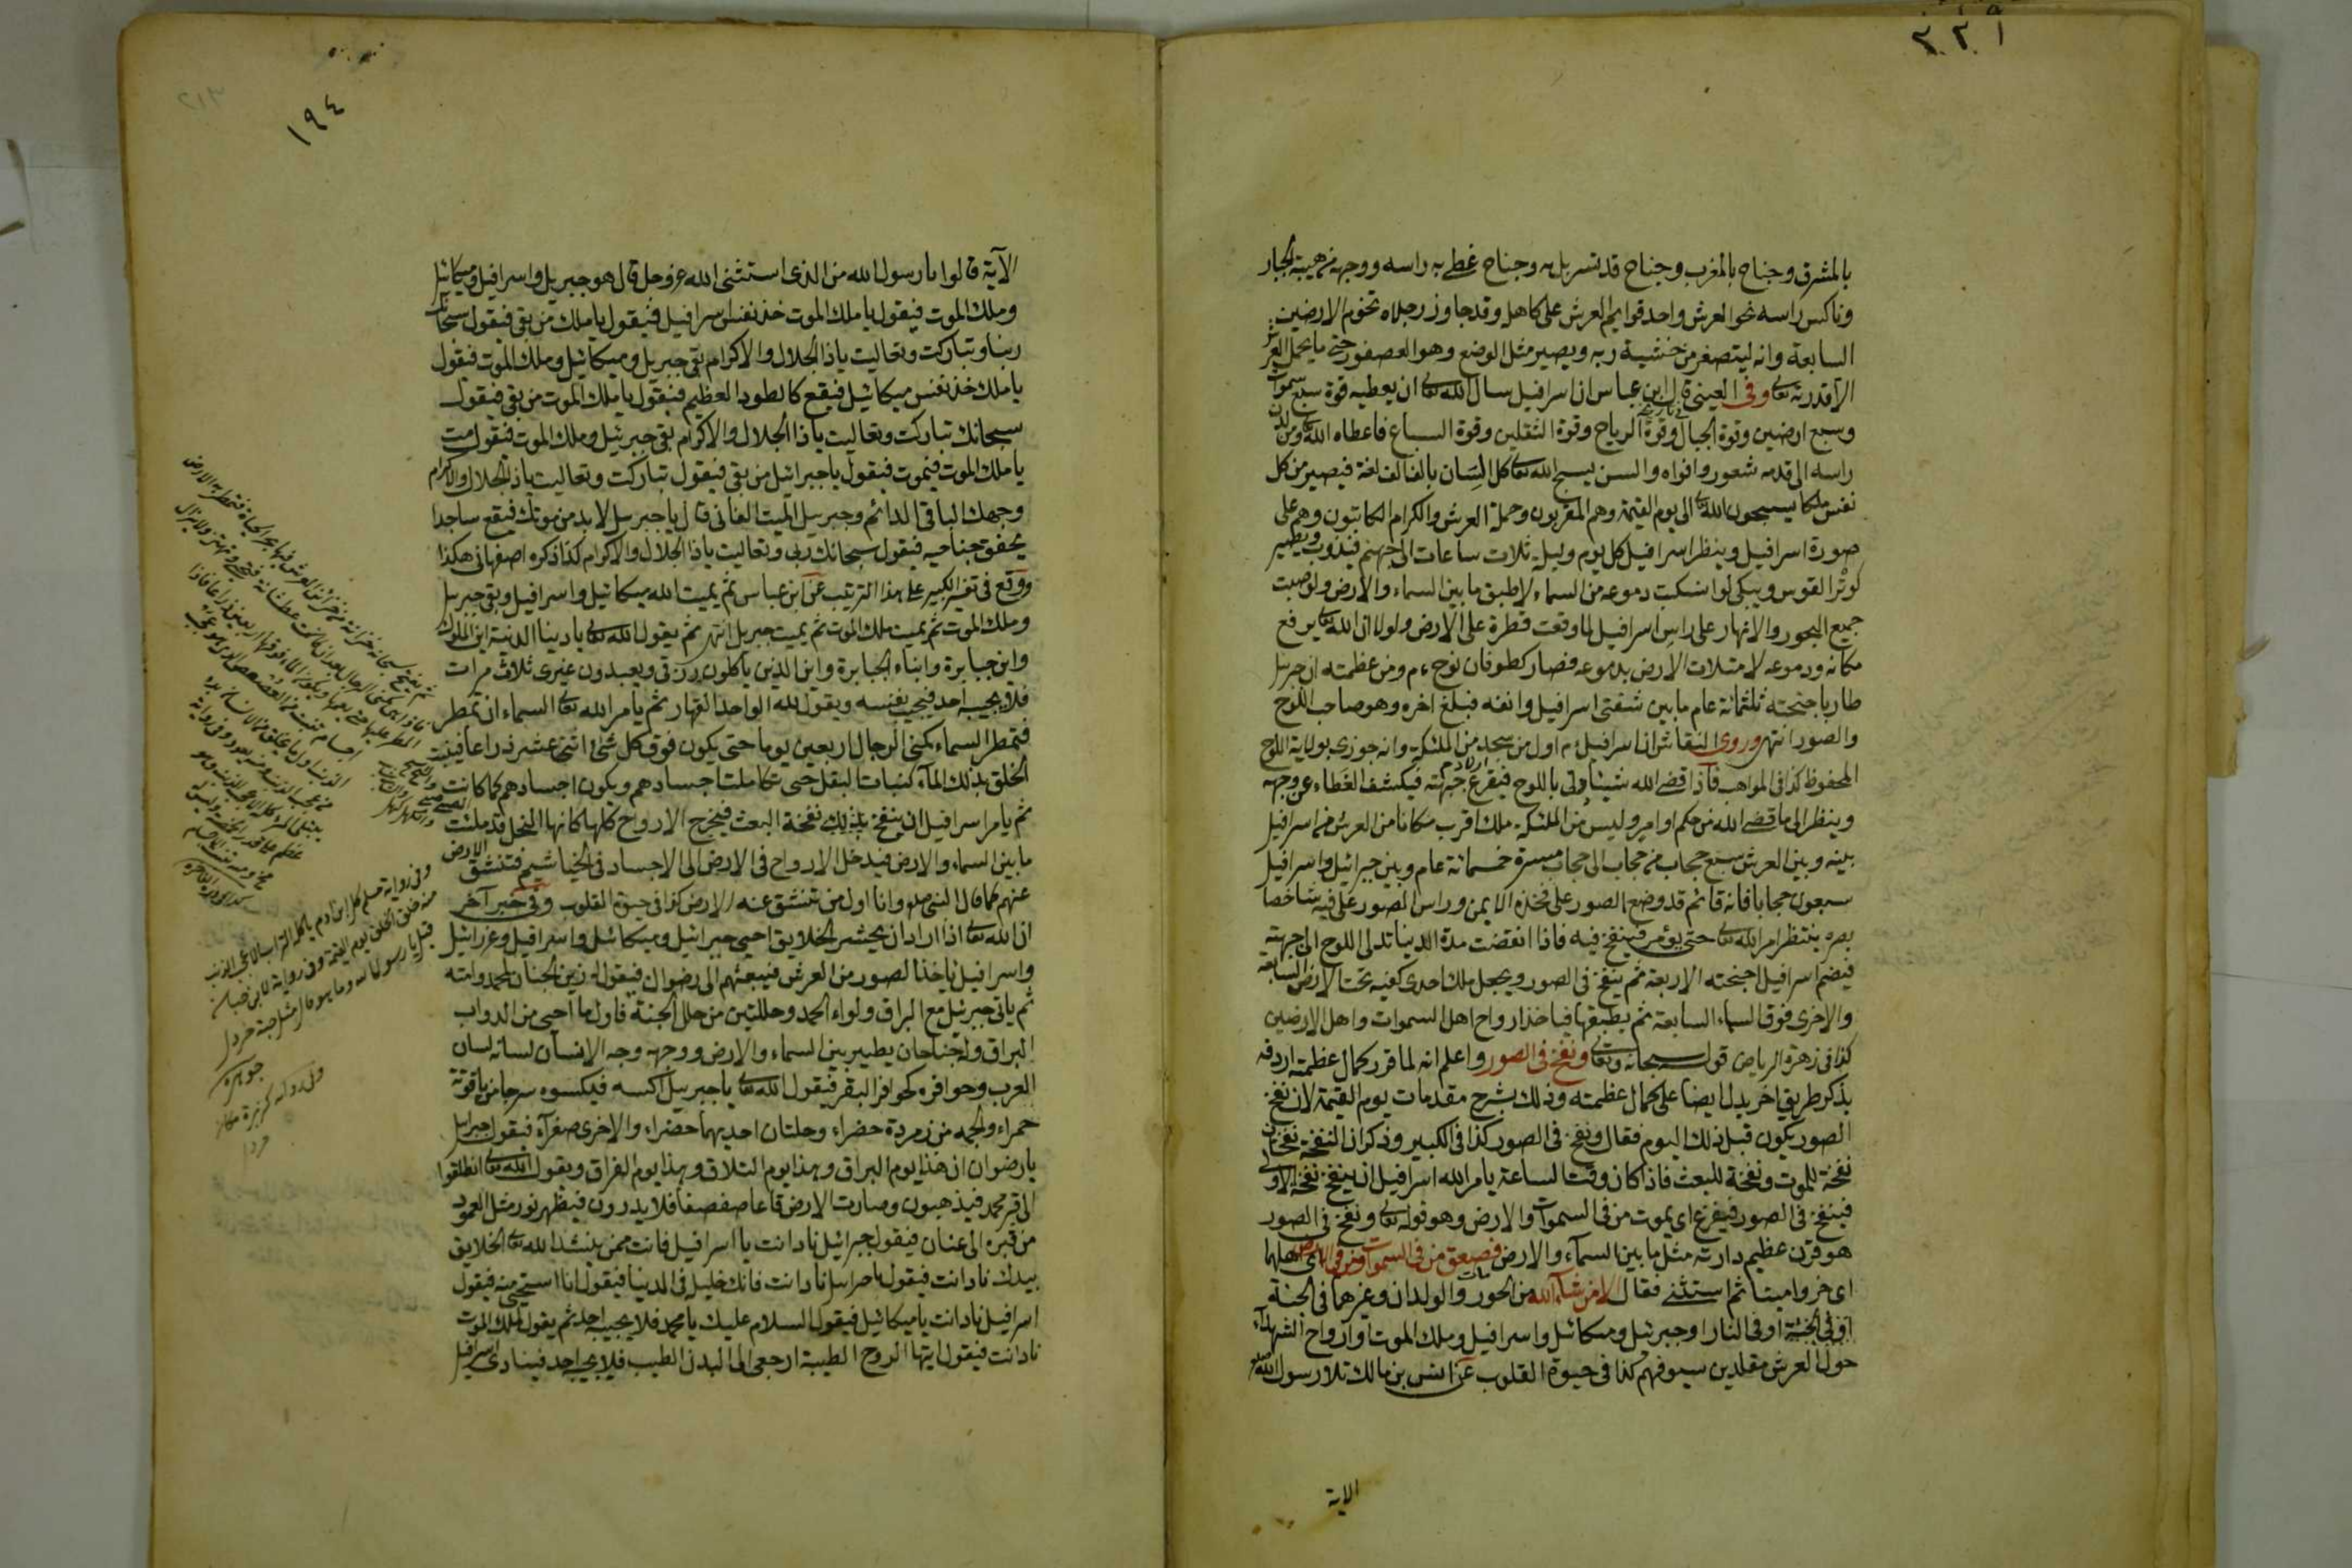 ٣٢٩
بالمشرق وجناح بالمغرب وجناح قد تسربل به وجناح غطے به راسه ووجهه من هيبة الجبار
وناكس راسه نحو العرش واحد قوايم العرش على كاهله وقد جاوز رجلاه تخوم الارضين
السابعة وانه ليتصغر من خشية ربه ويصير مثل الوضع وهو العصفور حتى ما يحمل العرش
الا قدرته تعالى وفى العينى قال ابن عباس ان اسرافيل سال الله تعالى ان يعطيه قوة سبع سموات
وسبع ارضين وقوة الجبال وقوة الرياح وقوة الثقلين وقوة السباع فاعطاه الله تعالى ومن لدن
راسه الى قدمه شعور وافواه والسن يسبح الله تعالى كل لسان بالف الف لغة فيصير من كل
نفس ملكا يسبحون الله تعالى الى يوم القيمة وهم المقربون وحملة العرش والكرام الكاتبون وهم على
صورة اسرافيل وينظر اسرافيل كل يوم وليلة ثلاث ساعات الى جهنم فيذوب ويصير
كوتر القوس ويبكى لو انسكبت دموعه من السماء لاطبق ما بين السماء والارض ولو صبت
جميع البحور والانهار على راس اسرافيل لما وقعت قطرة على الارض ولولا ان الله تعالى يرفع
مكانه ودموعه لامتلات الارض بدموعه فصار كطوفان نوح ءم ومن عظمته ان جبريل
طار باجنحته ثلثمائة عام ما بين شفتى اسرافيل وانفه فبلغ اخره وهو صاحب اللوح
والصور انتهى وروى النقاش ان اسرافيل ءم اول من سجد من الملئكة وانه جوزى بولاية اللوح
المحفوظ كذا فى المواهب فاذا قضے الله شيئا دلى باللوح فيقرع جبهته فيكشف الغطاء عن وجهه
وينظر الى ما قضے الله من حكم وامر وليس من الملئكة ملك اقرب مكانا من العرش من اسرافيل
بينه وبين العرش سبع حجاب من حجاب الى حجاب مسيرة خمسمائة عام وبين جبرائيل واسرافيل
سبعون حجابا فانه قائم قد وضع الصور على فخذه الايمن وراس الصور على فيه شاخصا
بصره ينتظر امر الله تعالى حتى يؤمر فينفخ فيه فاذا انقضت مدة الدينا تدلى اللوح الى جبهته
فيضم اسرافيل اجنحته الاربعة ثم ينفخ فى الصور ويجعل ملك احدى كفيه تحت الارض السابعة
والاخرى فوق السماء السابعة ثم يطبقها فياخذ ارواح اهل السموات واهل الارضين
كذا فى زهرة الرياض قوله سبحانه وتعالى ونفخ فى الصور واعلم انه لما قرر كمال عظمته اردفه
بذكر طريق اخر يدل ايضا على كمال عظمته وذلك بشرح مقدمات يوم القيمة لان نفخ
الصور يكون قبل ذلك اليوم فقال ونفخ فى الصور كذا فى الكبير وذكر ان النفخة نفختان
نفخة للموت ونفخة للبعث فاذا كان وقت الساعة يامر الله اسرافيل ان ينفخ نفخة الاولى
فينفخ فى الصور فيفزع اى يموت من فى السموات والارض وهو قوله تعالى ونفخ فى الصور
هو قرن عظيم دارته مثل ما بين السمآء والارض فصعق من فى السموات ومن فى الارض اى اهلها
اى خروا ميتا ثم استثنے فقال الا من شاء الله من الحور والولدان وغيرهما فى الجنة
او فى الجنة او فى النار او جبرئيل وميكائيل واسرافيل وملك الموت او ارواح الشهداء
حول العرش مقلدين سيوفهم كذا فى حيوة القلوب عن انس بن مالك تلا رسول الله
الاية
٢١٣
١٩٤
الآية قالوا يا رسول الله من الذى استثنى الله عز وجل قال هو جبريل واسرافيل وميكائيل
وملك الموت فيقول يا ملك الموت خذ نفس اسرافيل فيقول يا ملك من بقى فيقول سبحانك
ربنا وتباركت وتعاليت يا ذا الجلال والاكرام بقى جبريل وميكائيل وملك الموت فيقول
يا ملك خذ نفس ميكائيل فيقع كالطود العظيم فيقول يا ملك الموت من بقى فيقول
سبحانك تباركت وتعاليت يا ذا الجلال والاكرام بقى جبرئيل وملك الموت فيقول مت
يا ملك الموت فيموت فيقول يا جبرائيل من بقى فيقول تباركت وتعاليت يا ذا الجلال والاكرام
وجهك الباقى الدائم وجبريل الميت الفانى قال يا جبريل لا بد من موتك فيقع ساجدا
يخفق جناحيه فيقول سبحانك ربى وتعاليت يا ذا الجلال والاكرام كذا ذكره اصفهانى هكذا
ووقع فى تفسير الكبير على هذا الترتيب عن ابن عباس ثم يميت الله ميكائيل واسرافيل وبقى جبريل
وملك الموت ثم يميت ملك الموت ثم يميت جبريل انتهى ثم يقول الله تعالى يا دينا الدنية اين الملوك
واين جبابرة وابناء الجبابرة واين الذين ياكلون رزقى ويعبدون غيرى ثلاث مرات
فلا يجيب احد فيجيب بنفسه ويقول لله الواحد القهار ثم يامر الله تعالى السماء ان تمطر
فتمطر السماء كمنى الرجال اربعين يوما حتى يكون فوق كل شئ اثنى عشر ذراعا فينبت
الخلق بذلك المآء كنبات البقل حتى تكاملت اجسادهم ويكون اجسادهم كما كانت
ثم يامر اسرافيل ان ينفخ نفخة البعث فيخرج الارواح كلها كانها النحل قد ملئت
ما بين السماء والارض فيدخل الارواح فى الارض الى الاجساد فى الخياشيم فتنشق الارض
عنهم كما قال النبى صلعم وانا اول من تنشق عنه الارض كذا فى حيوة القلوب وفى خبر آخر
ان الله تعالى اذا اراد ان يحشر الخلايق احيى جبرائيل وميكائيل واسرافيل وعزرائيل
واسرافيل ياخذ الصور من العرش فيبعثهم الى رضوان فيقول زين الجنان لمحمد وامته
ثم ياتى جبرئيل مع البراق ولواء الحمد وحلتين من حلل الجنة فاول ما احيى من الدواب
البراق وله جناحان يطير بين السماء والارض ووجهه وجه الانسان لسانه لسان
العرب وحوافره كحوافر البقر فيقول الله تعالى يا جبريل اكسه فيكسوه سرجا من ياقوتة
حمراء ولجمه من زمردة خضراء وحلتان احديهما خضراء والاخرى صفرآء فيقول جبرائيل
يا رضوان ان هذا يوم البراق وهذا يوم التلاق وهذا يوم الفراق ويقول الله تعالى انطلقوا
الى قبر محمد فيذهبون وصارت الارض قاعا صفصفا فلا يدرون فيظهر نور مثل العمود
من قبره الى عنان فيقول جبرائيل ناد انت يا اسرافيل فانت ممن ينشد الله تعالى الخلايق
بيدك ناد انت فيقول يا جبرائيل ناد انت فانك خليل فى الدينا فيقول انا استحيى منه فيقول
اسرافيل ناد انت يا ميكائيل فيقول السلام عليك يا محمد فلا يجيب احد ثم يقول لملك الموت
ناد انت فيقول ايتها الروح الطيبة ارجعى الى البدن الطيب فلا يجيب احد فينادى اسرافيل
وفى رواية مسلم كل ابن ادم ياكله التراب الا عجب الذنب
منه خلق الخلق يوم القيمة وفى رواية لابن حبان
قيل يا رسول الله وما هو قال مثل حبة خردل